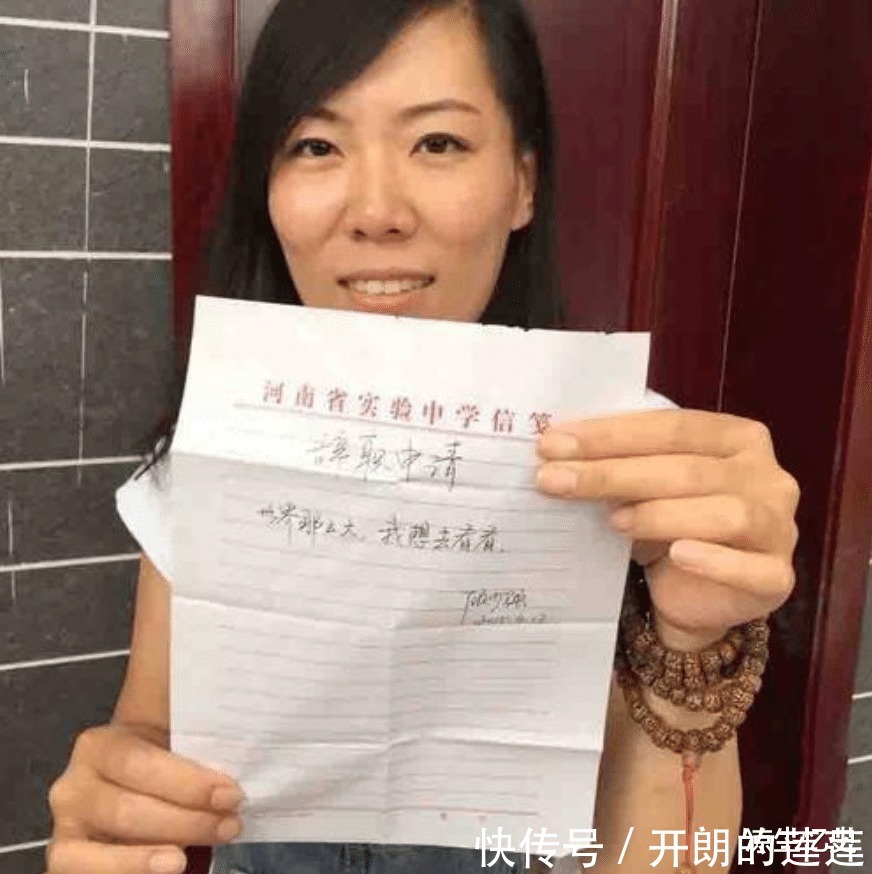 河南省实验中学信笺
辞职申请
世界那么大,我想去看看.
快传号 / 开朗的莲莲